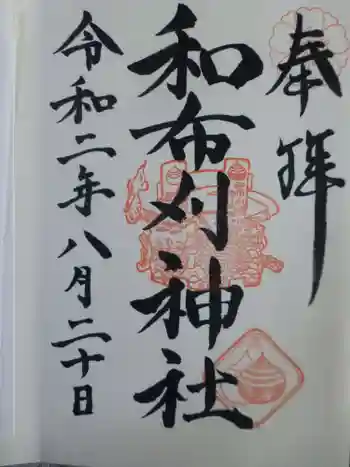 奉拝
和布刈神社
令和二年八月二十日